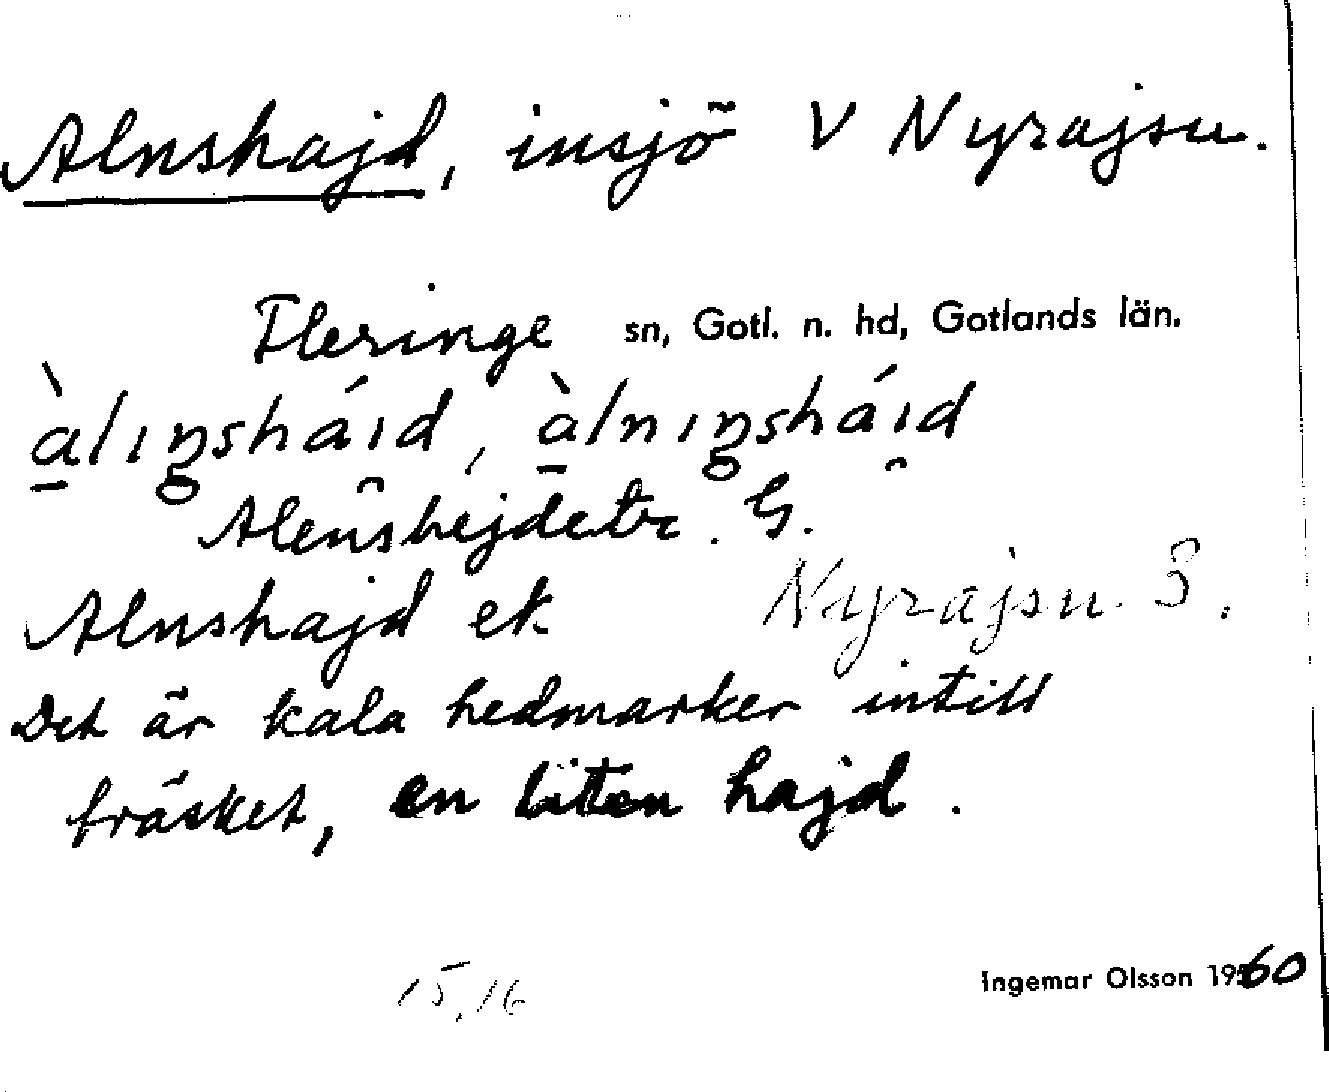 Alnshajd, insjö V Nyrajsu.
Fleringe sn, Gotl. n. hd, Gotlands län.
àlıŋsháıd, àlnıŋsháıd
Alenshejdetr. G.
Alnshajd ek Nyrajsu S.
Det är kala hedmarker intill
träsket, en liten hajd.
Ingemar Olsson 1960
15, 16